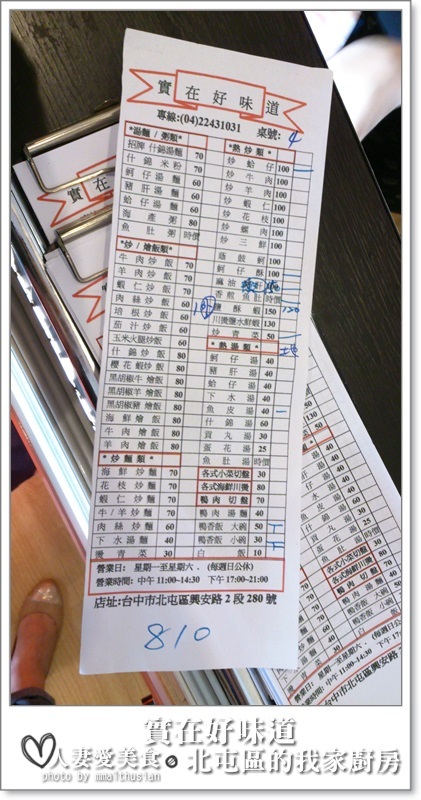 實在好味道
專線:(04)22431031
桌號: 4
*湯麵/粥類*
招牌什錦湯麵 70
什錦米粉 70
蚵仔湯麵 60
豬肝湯麵 60
蛤仔湯麵 60
海產粥 80
魚肚粥 時價
*炒/燴飯類*
牛肉炒飯 70
羊肉炒飯 70
蝦仁炒飯 70
肉絲炒飯 60
培根炒飯 60
茄汁炒飯 60
玉米火腿炒飯 60
什錦炒飯 80
櫻花蝦炒飯 80
黑胡椒牛燴飯 80
黑胡椒羊燴飯 80
黑胡椒豬燴飯 80
海鮮燴飯 80
牛肉燴飯 80
羊肉燴飯 80
*炒麵類*
海鮮炒麵 70
花枝炒麵 70
蝦仁炒麵 70
牛/羊炒麵 70
肉絲炒麵 60
下水湯麵 60
燙青菜 30
*熱炒類*
炒蛤仔 100
炒牛肉 100
炒羊肉 100
炒蝦仁 100
炒花枝 100
炒螺肉 100
炒三鮮 100
蔭豉蚵 100
蚵仔酥 100
麻油
香煎魚肚 時價
鹽酥蝦 150
川燙鹽水鮮蝦 130
炒青菜 50
*熱湯類*
蚵仔湯 40
豬肝湯 40
蛤仔湯 40
下水湯 40
魚皮湯 40
什錦湯 60
貢丸湯 30
蛋花湯 25
魚肚湯 時價
各式小菜切盤 30
各式海鮮川燙 80
鴨肉切盤 70
鴨肉湯麵 40
鴨香飯 大碗 50
鴨香飯 小碗 30
白飯 10
營業日: 星期一至星期六、(每週日公休)
營業時間: 中午 11:00~14:30 下午 17:00~21:00
店址:台中市北屯區興安路 2 段 280 號
810
實在好味道
人妻愛美食。北屯區的我家廚房
photo by mmalthusian